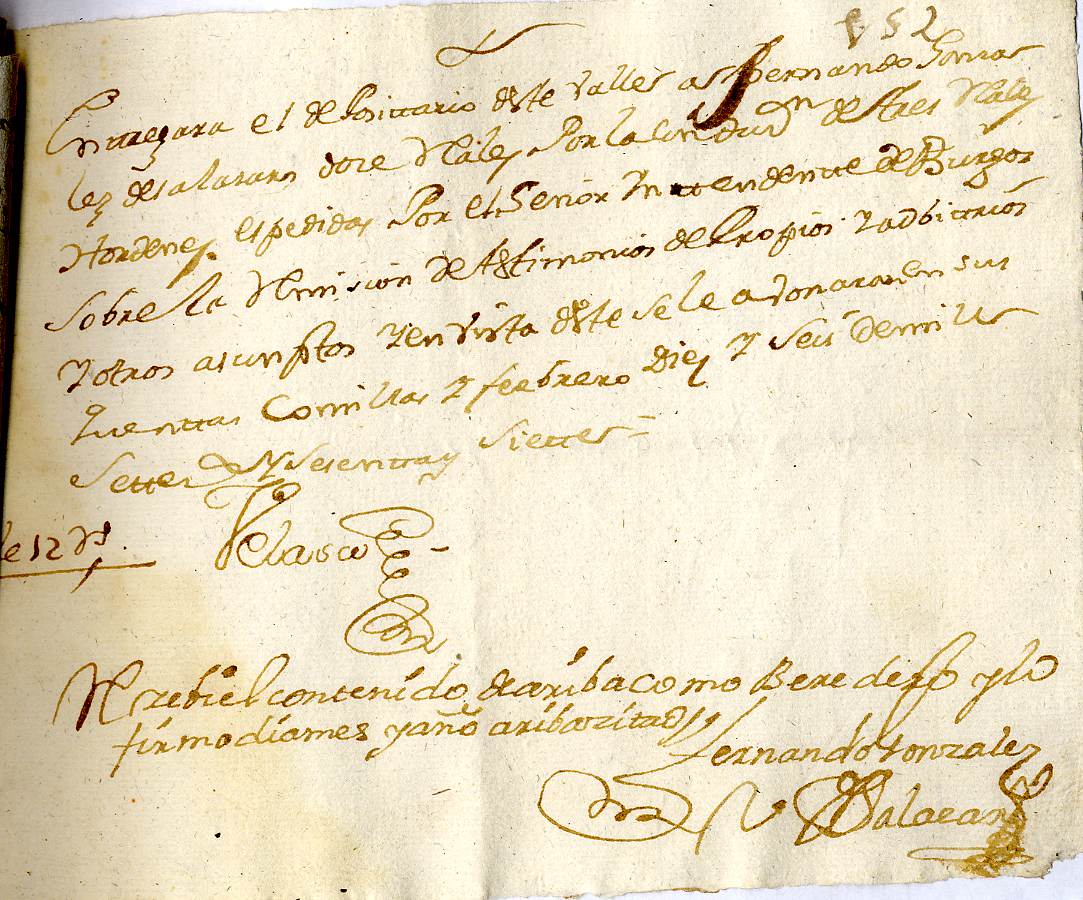 152
Entregara el depositario deste Valle a Fernando Gonza
lez de salazar doze Rales Por la conduzn de tres Rales
Hordenes espedidas Por el Señor Intendente de Burgos
sobre la Remision de testimonios de Propios y adbitrios
y otros asumptos y en vista deste se le avonaran en sus
quenttas Comillas y febrero Diez y seis de mill
Settez.s y sesentta y siette=
de 12 Rs.
Velasco
Rezebi el contenido de ariba como Bere defso y lo
firmo dia mes y año ariba zitado
fernando Gonzalez
de Salazar